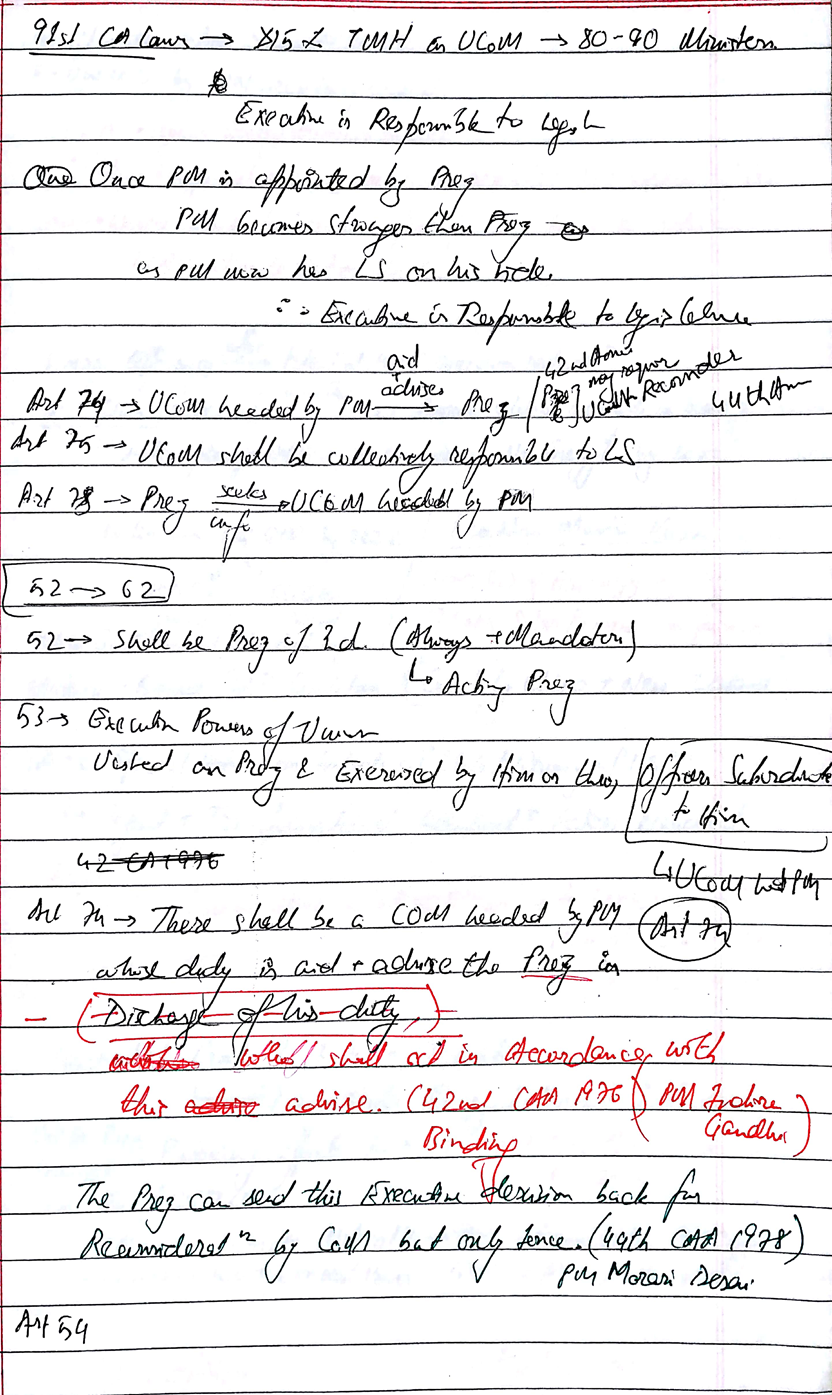 91st CA Law → 15% TMH on UCoM → 80-90 Ministers.
Executive is Responsible to Legisl
Once PM is appointed by Prez
PM becomes stronger then Prez
as PM now has LS on his side.
∴ Executive is Responsible to Legislature
Art 74 → UCoM headed by PM aid + advises → Prez [Prez may requir UCoM Reconsider
42nd Amm
44th Am
Art 75 → UCoM shall be collectively responsible to LS
Art 78 → Prez seeks info → UCoM headed by PM
52 → 62
52 → Shall be Prez of Ind. (Always + Mandatory)
↳ Acting Prez
53 → Executive Powers of Union
Vested on Prez & Exercised by Him or thro, Officers Subordinate
to Him
↳ UCoM hd PM
42 CA 1976
Art 74 → There shall be a COM headed by PM
Art 74
whose duty is aid + advise the Prez in
- (Discharge of his duty,)
who shall act in Accordance with
this advise. (42nd CAA 1976) (PM Indira
Gandhi)
Binding
The Prez can send this Executive decision back for
Reconsideratn by CoM but only 1once. (44th CAA 1978)
PM Morarji Desai
Art 54